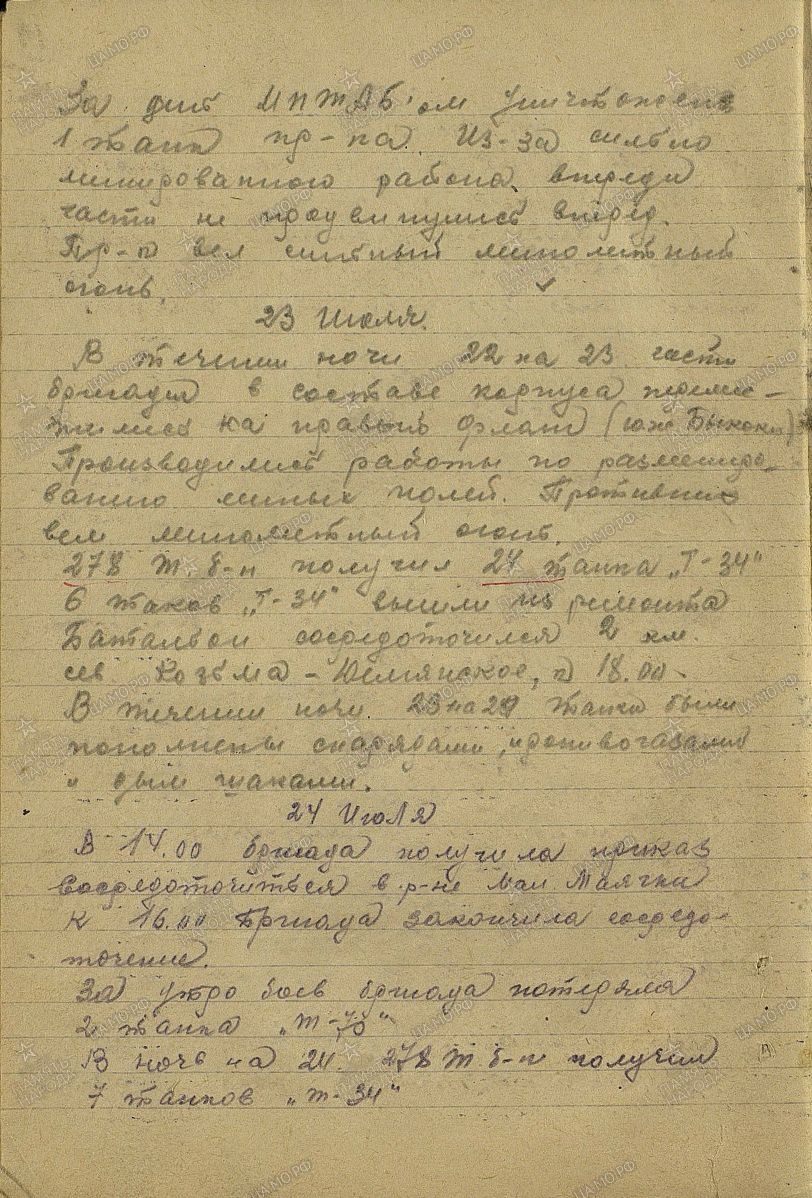 За день МПТАБ'ом уничтожено
1 танк пр-ка. Из-за сильно
минированного района, впереди
части не продвинулись вперед.
Пр-к вел сильный минометный
огонь.
23 Июля.
В течении ночи 22 на 23 части
бригады в составе корпуса
на правый фланг (юж. Быковки)
Производились работы по разминиро-
ванию миных полей. Противник
вел минометный огонь.
278 т. б-н получил 24 танка „Т-34"
6 таков „Т-34" вышли из ремонта
Батальон сосредоточился 2 км.
сев. Козьма-Демянское, в 18.00.
В течении ночи 23 на 24 танки были
пополнены снарядами,
и дым шаками.
24 Июля
В 14.00 бригада получила приказ
сосредоточиться в р-не Мал. Маячки
К 16.00 Бригада закончила сосредо-
точение.
За утро боев бригада потеряла
2 танка „Т-70"
В ночь на 24. 278 т б-н получил
7 танков „т-34"